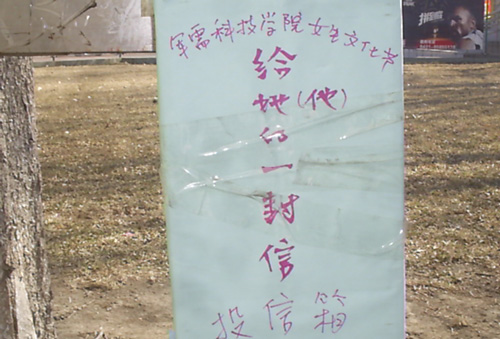 军需科技学院女生文化节
给她(他)的一封信
投信箱